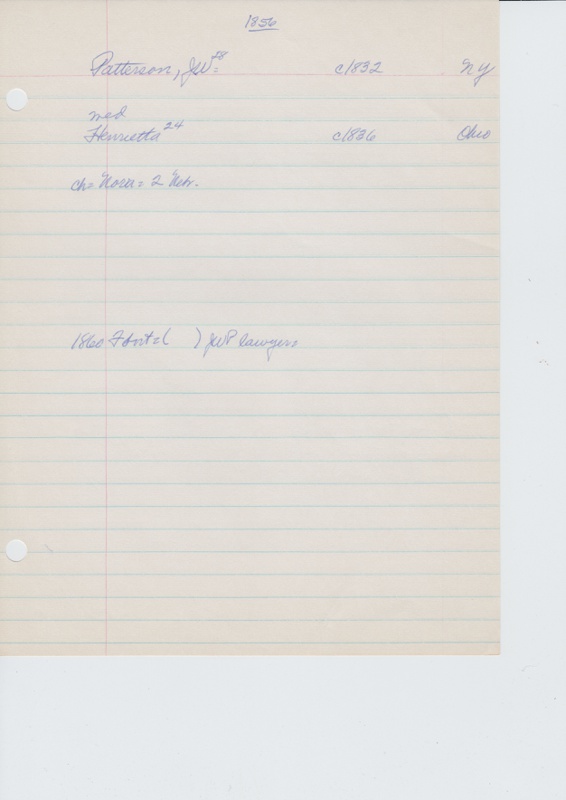 1856
Patterson, JW= 28 c1832 NY
med
Henrietta 24 c1836 Ohio
ch= Nora = 2 Nebr.
1860 ) JWP lawyers